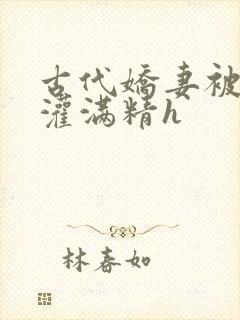 古代嬌妻被
灌满精h
林春如